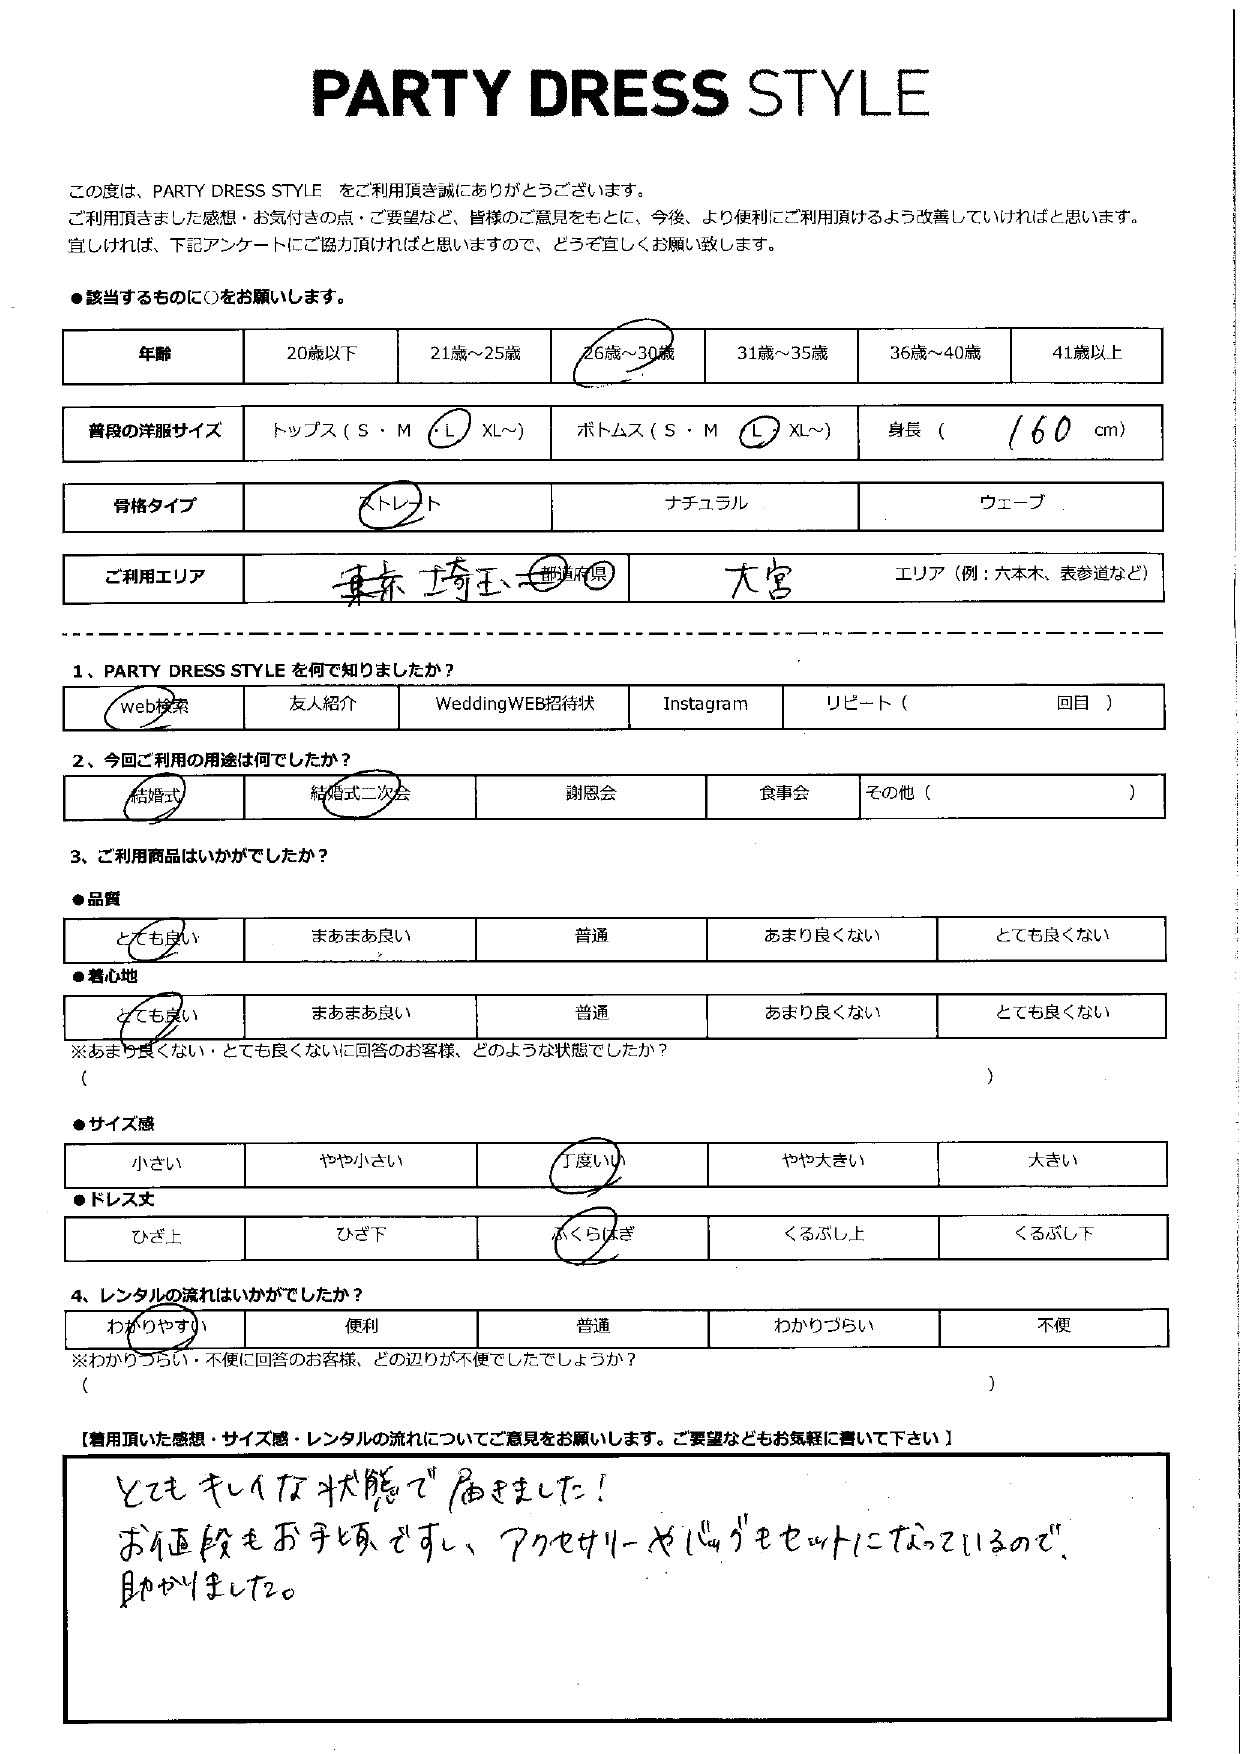 PARTY DRESS STYLE
この度は、PARTY DRESS STYLE　をご利用頂き誠にありがとうございます。
ご利用頂きました感想・お気付きの点・ご要望など、皆様のご意見をもとに、今後、より便利にご利用頂けるよう改善していければと思います。
宜しければ、下記アンケートにご協力頂ければと思いますので、どうぞ宜しくお願い致します。
●該当するものに○をお願いします。
年齢 20歳以下 21歳～25歳 26歳～30歳 31歳～35歳 36歳～40歳 41歳以上
普段の洋服サイズ トップス ( S ・ M ・ L XL～) ボトムス ( S ・ M L ・ XL～) 身長 ( 160 cm)
骨格タイプ ストレート ナチュラル ウェーブ
ご利用エリア 東京 埼玉 都道府県 大宮 エリア（例：六本木、表参道など）
1、PARTY DRESS STYLE を何で知りましたか？
web検索 友人紹介 WeddingWEB招待状 Instagram リピート（ 回目 ）
2、今回ご利用の用途は何でしたか？
結婚式 結婚式二次会 謝恩会 食事会 その他（ ）
3、ご利用商品はいかがでしたか？
●品質
とても良い まあまあ良い 普通 あまり良くない とても良くない
●着心地
とても良い まあまあ良い 普通 あまり良くない とても良くない
※あまり良くない・とても良くないに回答のお客様、どのような状態でしたか？
（ ）
●サイズ感
小さい やや小さい 丁度いい やや大きい 大きい
●ドレス丈
ひざ上 ひざ下 ふくらはぎ くるぶし上 くるぶし下
4、レンタルの流れはいかがでしたか？
わかりやすい 便利 普通 わかりづらい 不便
※わかりづらい・不便に回答のお客様、どの辺りが不便でしたでしょうか？
（ ）
【着用頂いた感想・サイズ感・レンタルの流れについてご意見をお願いします。ご要望などもお気軽に書いて下さい】
とてもキレイな状態で届きました！
お値段もお手頃ですし、アクセサリーやバッグもセットになっているので、
助かりました。